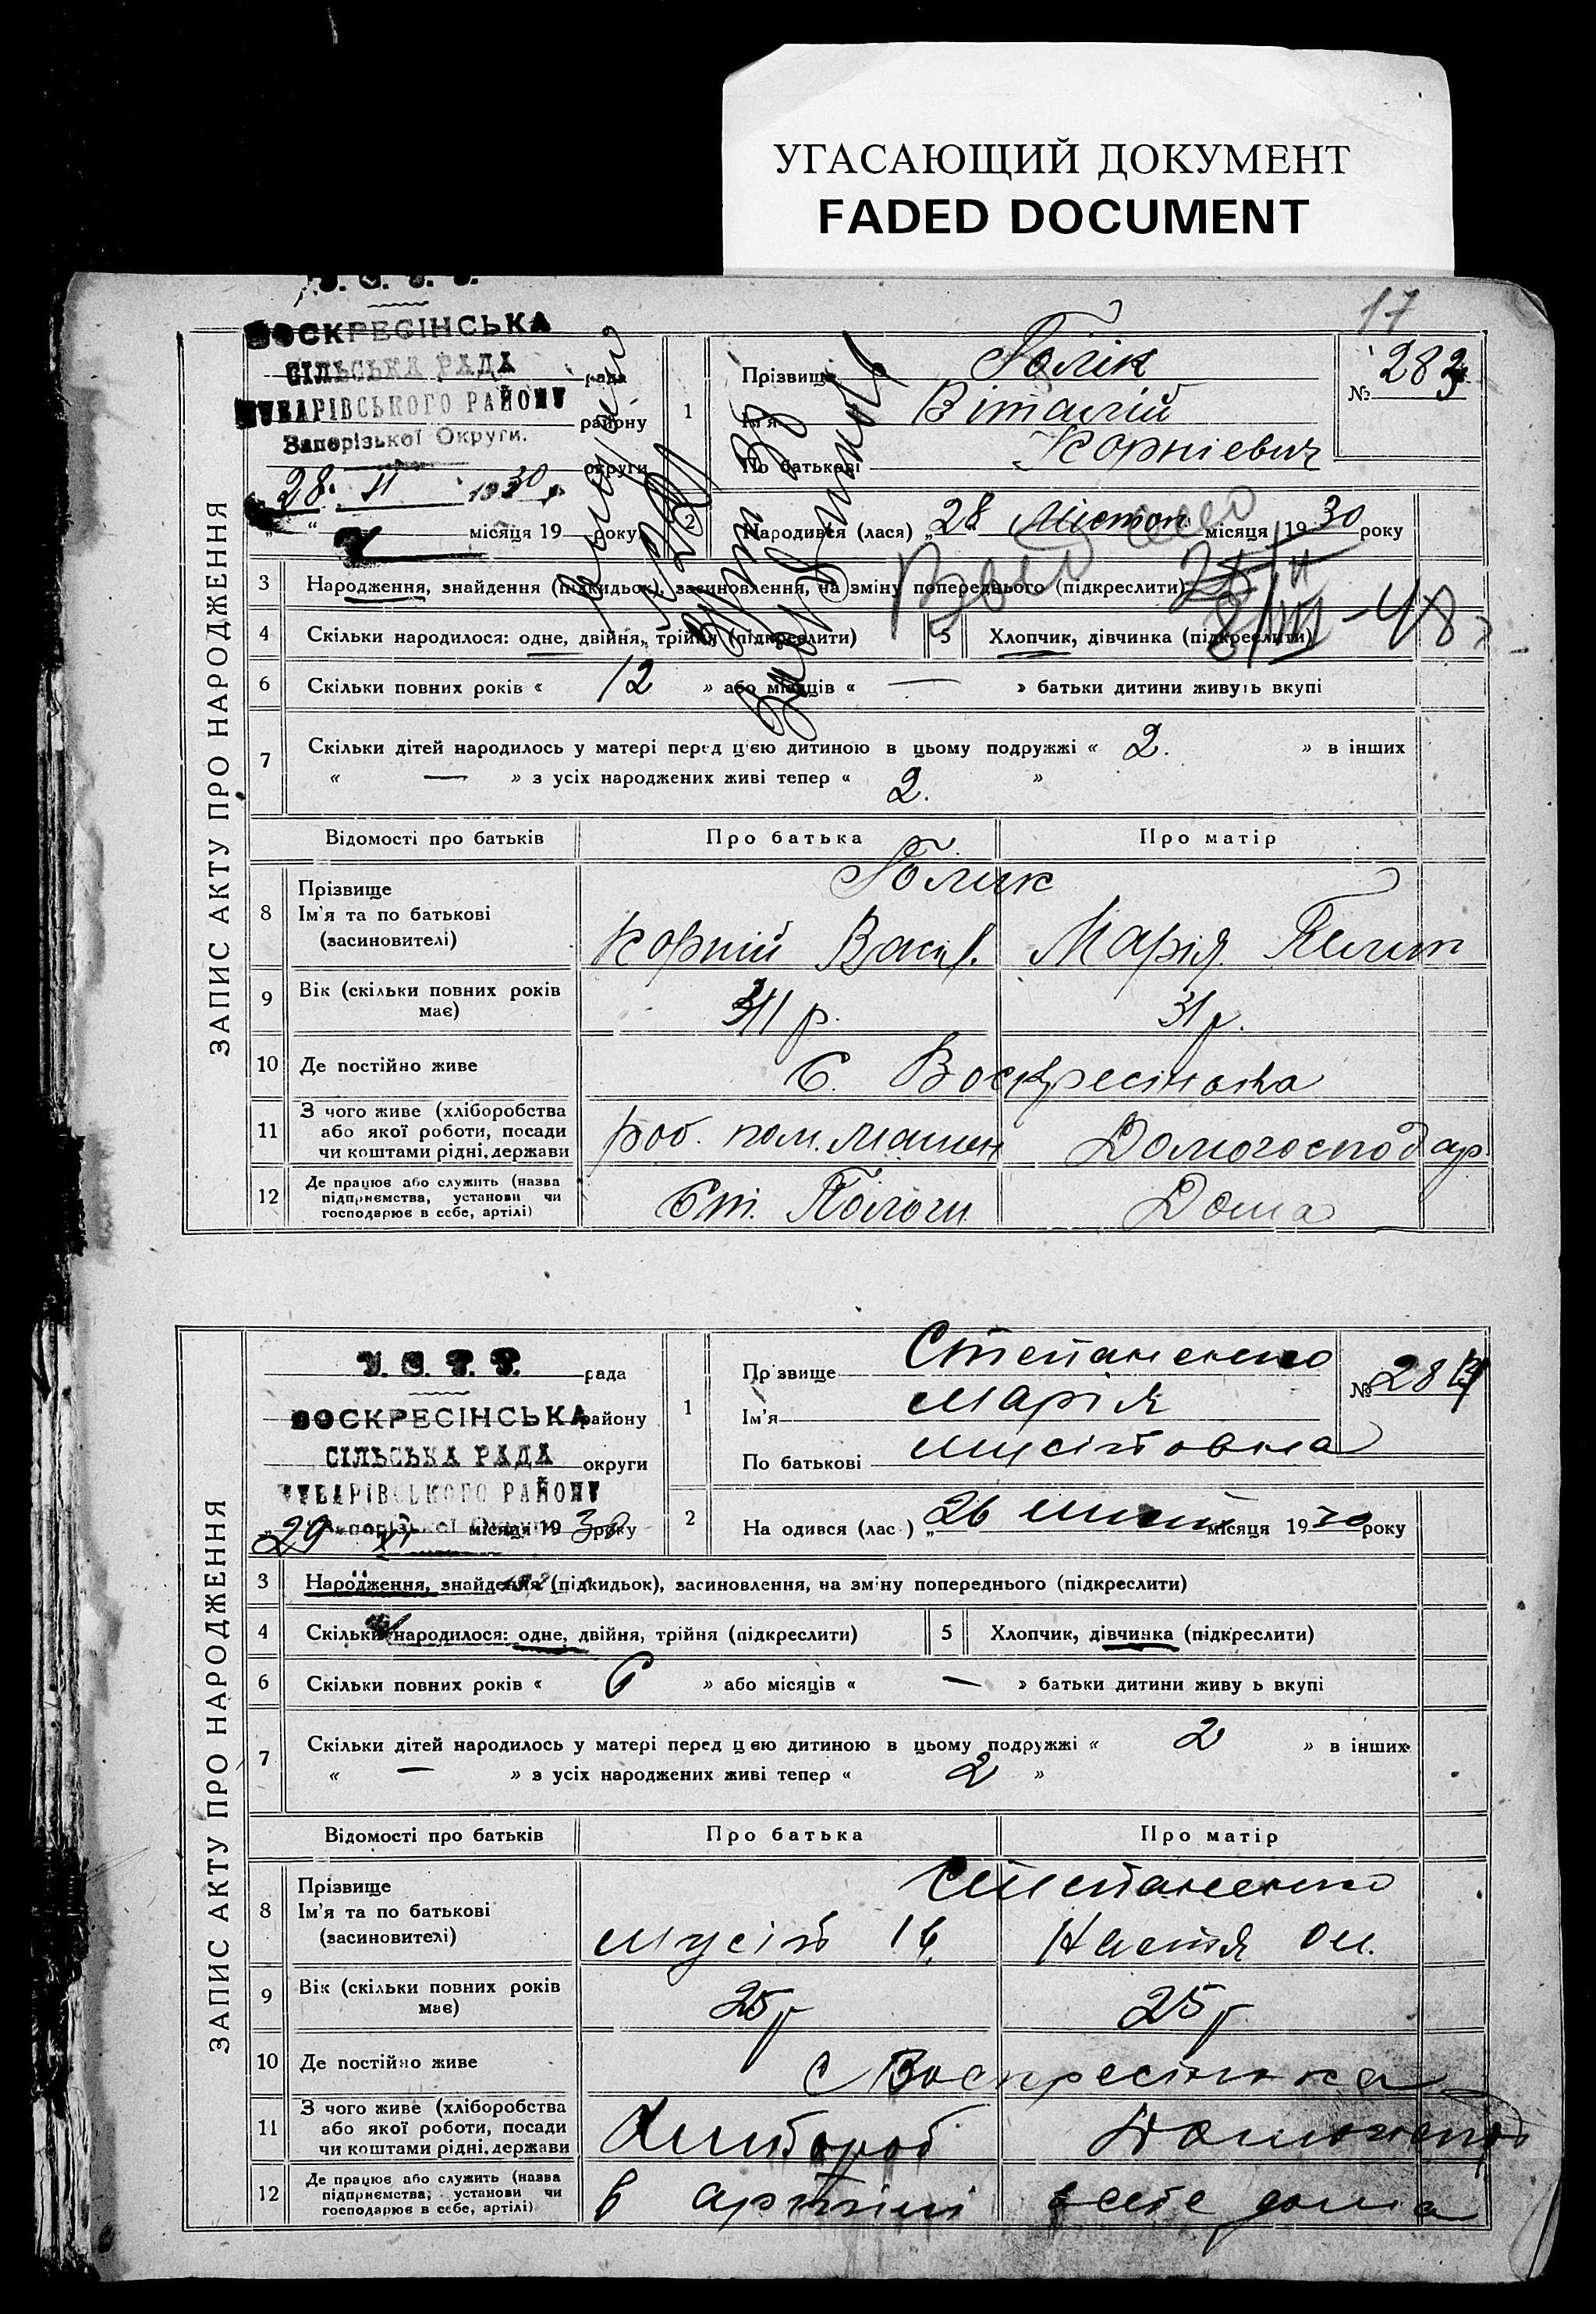 УГАСАЮЩИЙ ДОКУМЕНТ
FADED DOCUMENT
17
ЗАПИС АКТУ ПРО НАРОДЖЕННЯ
ВОСКРЕСІНСЬКА
СІЛЬСЬКА РАДА рада
ЧУБАРІВСЬКОГО РАЙОНУ району
Запорізької Округи.
округи
28. II 1930
місяця 19 року
1 Прізвище Голік
Ім'я Віталій
По батькові Корніевич
№ 283
2 Народився (лася) „28 Листоп місяця 1930 року
3 Народження, знайдення (підкидьок), засиновлення, на зміну попереднього (підкреслити)
8/III-48
4 Скільки народилося: одне, двійня, трійня (підкреслити) 5 Хлопчик, дівчинка (підкреслити)
6 Скільки повних років « 12 » або місяців « — » батьки дитини живуть вкупі
7 Скільки дітей народилось у матері перед цією дитиною в цьому подружжі « 2. » в інших
« — » з усіх народжених живі тепер « 2. »
Відомості про батьків Про батька Про матір
8 Прізвище Голик
Ім'я та по батькові
(засиновителі) Корній Васил. Марія Пилип
9 Вік (скільки повних років має) 31 р. 31 р.
10 Де постійно живе С. Воскресінька
11 З чого живе (хліборобства
або якої роботи, посади
чи коштами рідні, держави роб. пом. машин Домогосподар
12 Де працює або служить (назва
підприємства, установи чи
господарює в себе, артілі) Ст. Пологи Дома
ЗАПИС АКТУ ПРО НАРОДЖЕННЯ
У. С. Р. Р. рада
ВОСКРЕСІНСЬКА району
СІЛЬСЬКА РАДА округи
ЧУБАРІВСЬКОГО РАЙОНУ
29 XI місяця 1930 року
1 Прізвище Степаненко
Ім'я Марія
По батькові Мусіївовна
№ 284
2 На одився (лас ) „26 місяця 1930 року
3 Народження, знайдення (підкидьок), засиновлення, на зміну попереднього (підкреслити)
4 Скільки народилося: одне, двійня, трійня (підкреслити) 5 Хлопчик, дівчинка (підкреслити)
6 Скільки повних років « 6 » або місяців « — » батьки дитини живу ь вкупі
7 Скільки дітей народилось у матері перед ц єю дитиною в цьому подружжі « 2 » в інших
« — » з усіх народжених живі тепер « 2 »
Відомості про батьків Про батька Про матір
8 Прізвище Степаненко
Ім'я та по батькові
(засиновителі) Мусій Ів. Настя
9 Вік (скільки повних років має) 25 р 25 р
10 Де постійно живе С Воскресінька
11 З чого живе (хліборобства
або якої роботи, посади
чи коштами рідні, держави Хлибороб Домогоспод
12 Де працює або служить (назва
підприємства, установи чи
господарює в себе, артілі) в артілі в себе дома